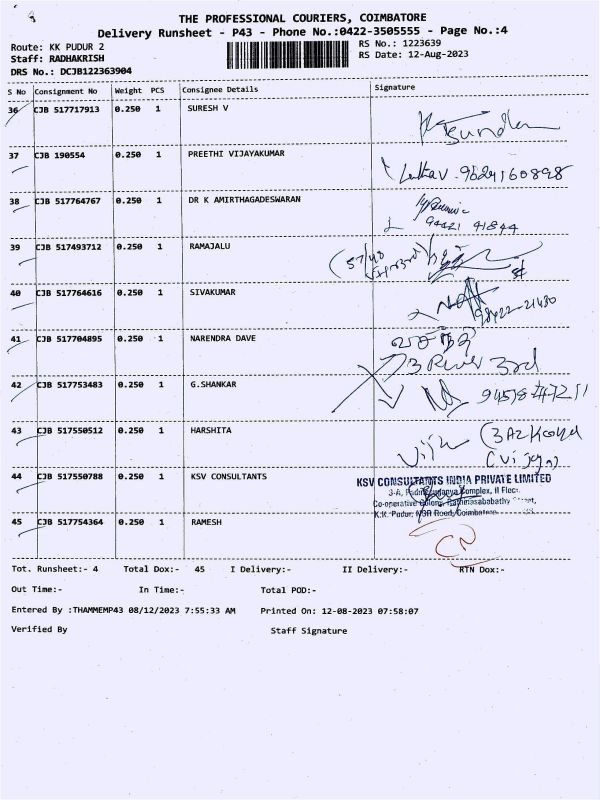 THE PROFESSIONAL COURIERS, COIMBATORE
Delivery Runsheet - P43 - Phone No.:0422-3505555 - Page No.:4
Route: KK PUDUR 2
RS No.: 1223639
Staff: RADHAKRISH
RS Date: 12-Aug-2023
DRS No.: DCJB122363904
S No Consignment No Weight PCS Consignee Details Signature
36 CJB 517717913 0.250 1 SURESH V
37 CJB 190554 0.250 1 PREETHI VIJAYAKUMAR
38 CJB 517764767 0.250 1 DR K AMIRTHAGADESWARAN
94421 41844
39 CJB 517493712 0.250 1 RAMAJALU
40 CJB 517764616 0.250 1 SIVAKUMAR
98422-21480
41 CJB 517704895 0.250 1 NARENDRA DAVE
3rd
42 CJB 517753483 0.250 1 G.SHANKAR
43 CJB 517550512 0.250 1 HARSHITA
44 CJB 517550788 0.250 1 KSV CONSULTANTS
KSV CONSULTANTS INDIA PRIVATE LIMITED
3-A, Complex, II Floor,
Co-operative Colony,
K.K. Pudur, NSR Road, Coimbatore
45 CJB 517754364 0.250 1 RAMESH
CN
Tot. Runsheet:- 4 Total Dox:- 45 I Delivery:- II Delivery:- RTN Dox:-
Out Time:- In Time:- Total POD:-
Entered By :THAMMEMP43 08/12/2023 7:55:33 AM Printed On: 12-08-2023 07:58:07
Verified By Staff Signature